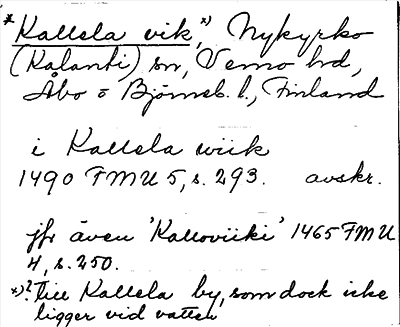 *Kallela vik,*) Nykyrko
(Kalanti) sn, Vemo hd,
Åbo o Björneb. l., Finland
i Kallela wiik
1490 FMU 5, s. 293. avskr.
jfr även 'Kalloviiki' 1465 FMU
4, s. 250.
*)? Till Kallela by, som dock icke
ligger vid vatten